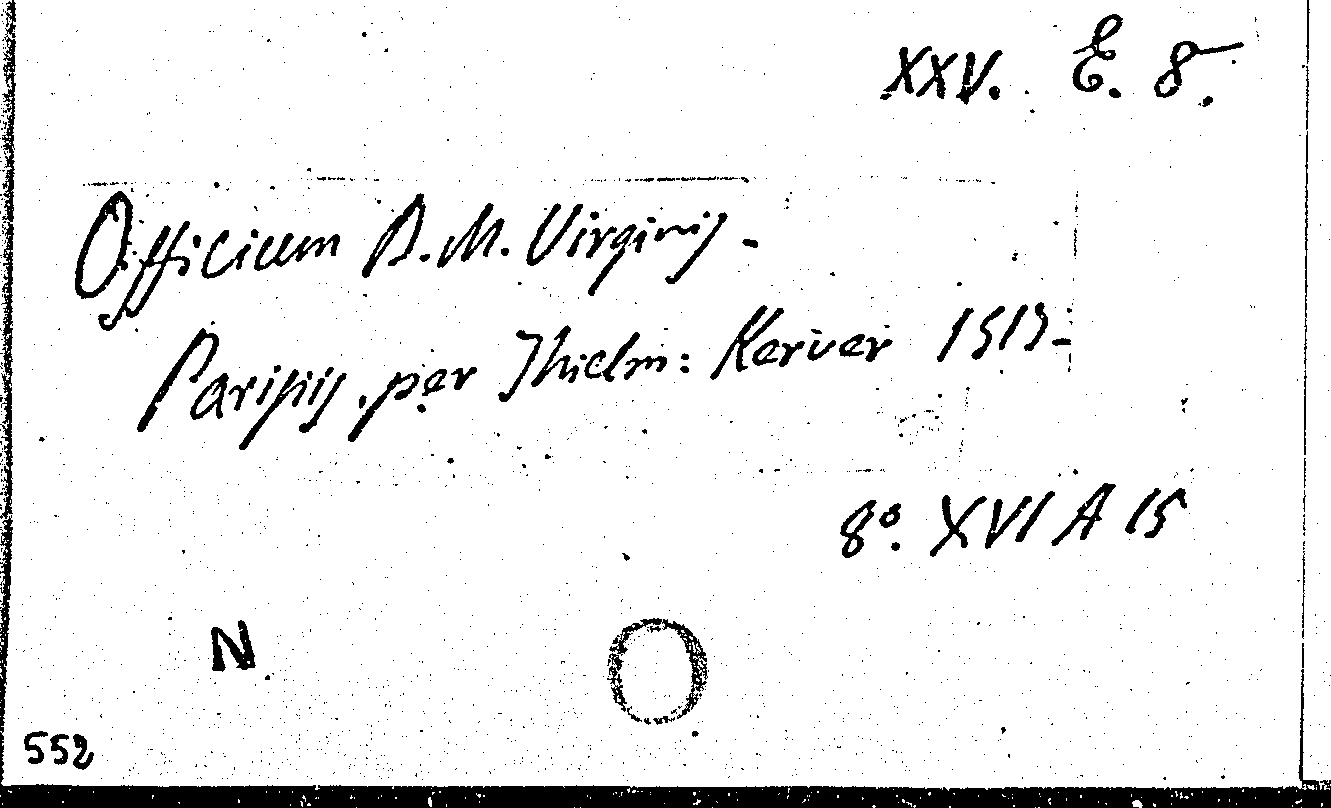 XXV. E. 8.
Officium B. M. Virginis.
Parisiis, per Thielm: Kerver 1513.
8º. XVI A 15
N
552